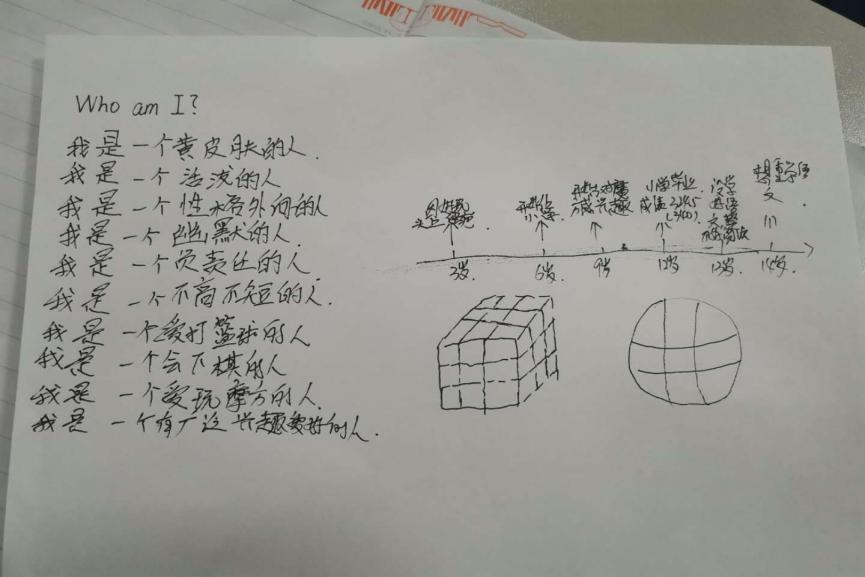 Who am I?
我是一个黄皮肤的人.
我是一个活泼的人
我是一个性格外向的人
我是一个幽默的人.
我是一个负责任的人.
我是一个不高不矮的人.
我是一个爱打篮球的人
我是一个会下棋的人
我是一个爱玩摩方的人.
我是一个有广泛兴趣爱好的人.
开始上小学
开始对魔方感兴趣
小学毕业成绩
3岁. 6岁. 9岁 12岁. 13岁. 14岁.